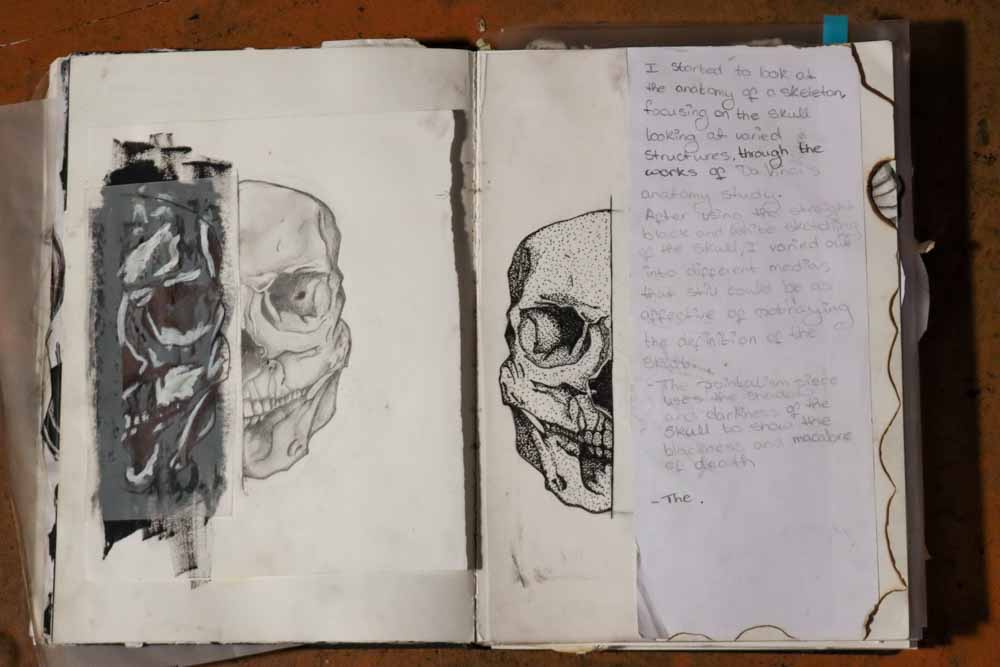 I started to look at
the anatomy of a skeleton,
focusing on the skull
looking at varied
structures, through the
works of Da Vinci's
anatomy study.
After using the straight
black and white sketching
of the skull, I varied out
into different medias
that still could be as
affective of motraying
the definition of the
- The pointalism piece
uses the shadows
and darkness of the
skull to show the
blackness and macabre
of death
- The .